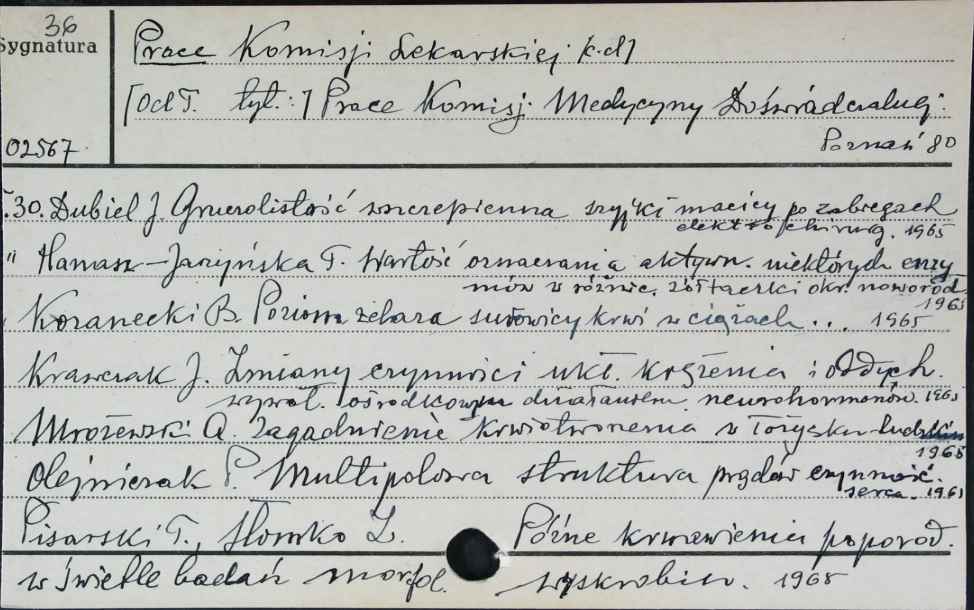 36
Sygnatura
Prace Komisji Lekarskiej [c.d]
[Od T. tyt.:] Prace Komisj. Medycyny Doświadczalnej.
02567
Poznań 80
T.30. Dubiel J. Gruczolistość wszczepienna szyjki macicy po zabiegach
elektrochirurg. 1965
" Hanasz-Jarzyńska T. Wartość oznaczania aktywn. niektórych enzy
mów w różnic. żółtaczki okr. noworod.
1965
Kozanecki B. Poziom żelaza surowicy krwi w ciążach... 1965
Krawczak J. Zmiany czynności ukł. krążenia i oddych.
wywoł. ośrodkowym działaniem neurohormonów. 1965
Mrożewski A. Zagadnienie krwiotworzenia w łożysku ludzkim
1965
Olejniczak P. Multipolowa struktura prądów czynność.
serca. 1965
Pisarski T., Słomko Z. Późne krwawienia poporod.
w świetle badań morfol. wyskrobin. 1965